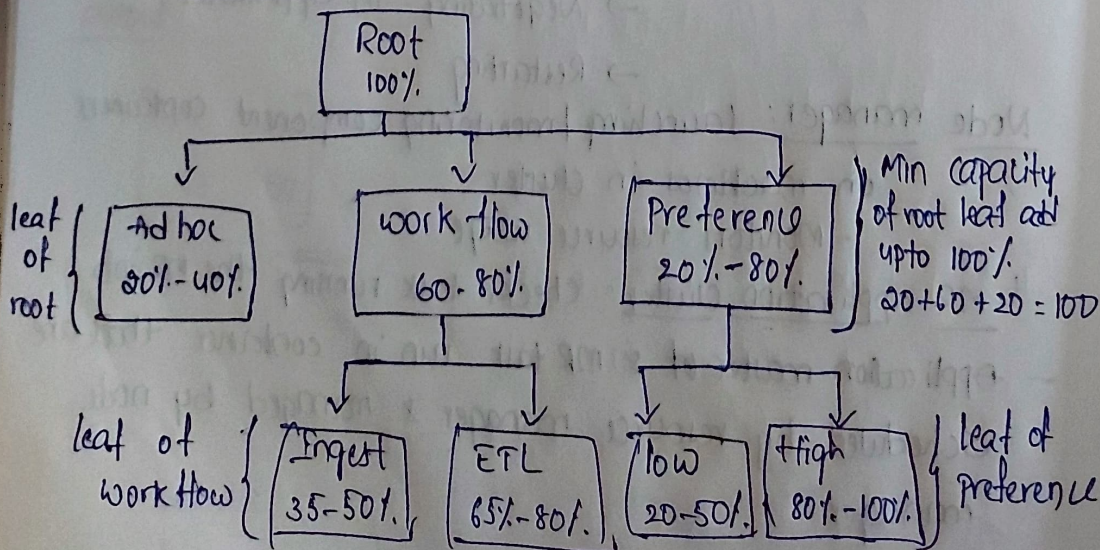 Root
100%
leaf
of
root
Adhoc
20%-40%
work flow
60-80%
Preference
20%-80%
Min capacity
of root leaf add
upto 100%
20+60+20=100
leaf of
workflow
Ingest
35-50%
ETL
65%-80%
low
20-50%
High
80%-100%
leaf of
preference